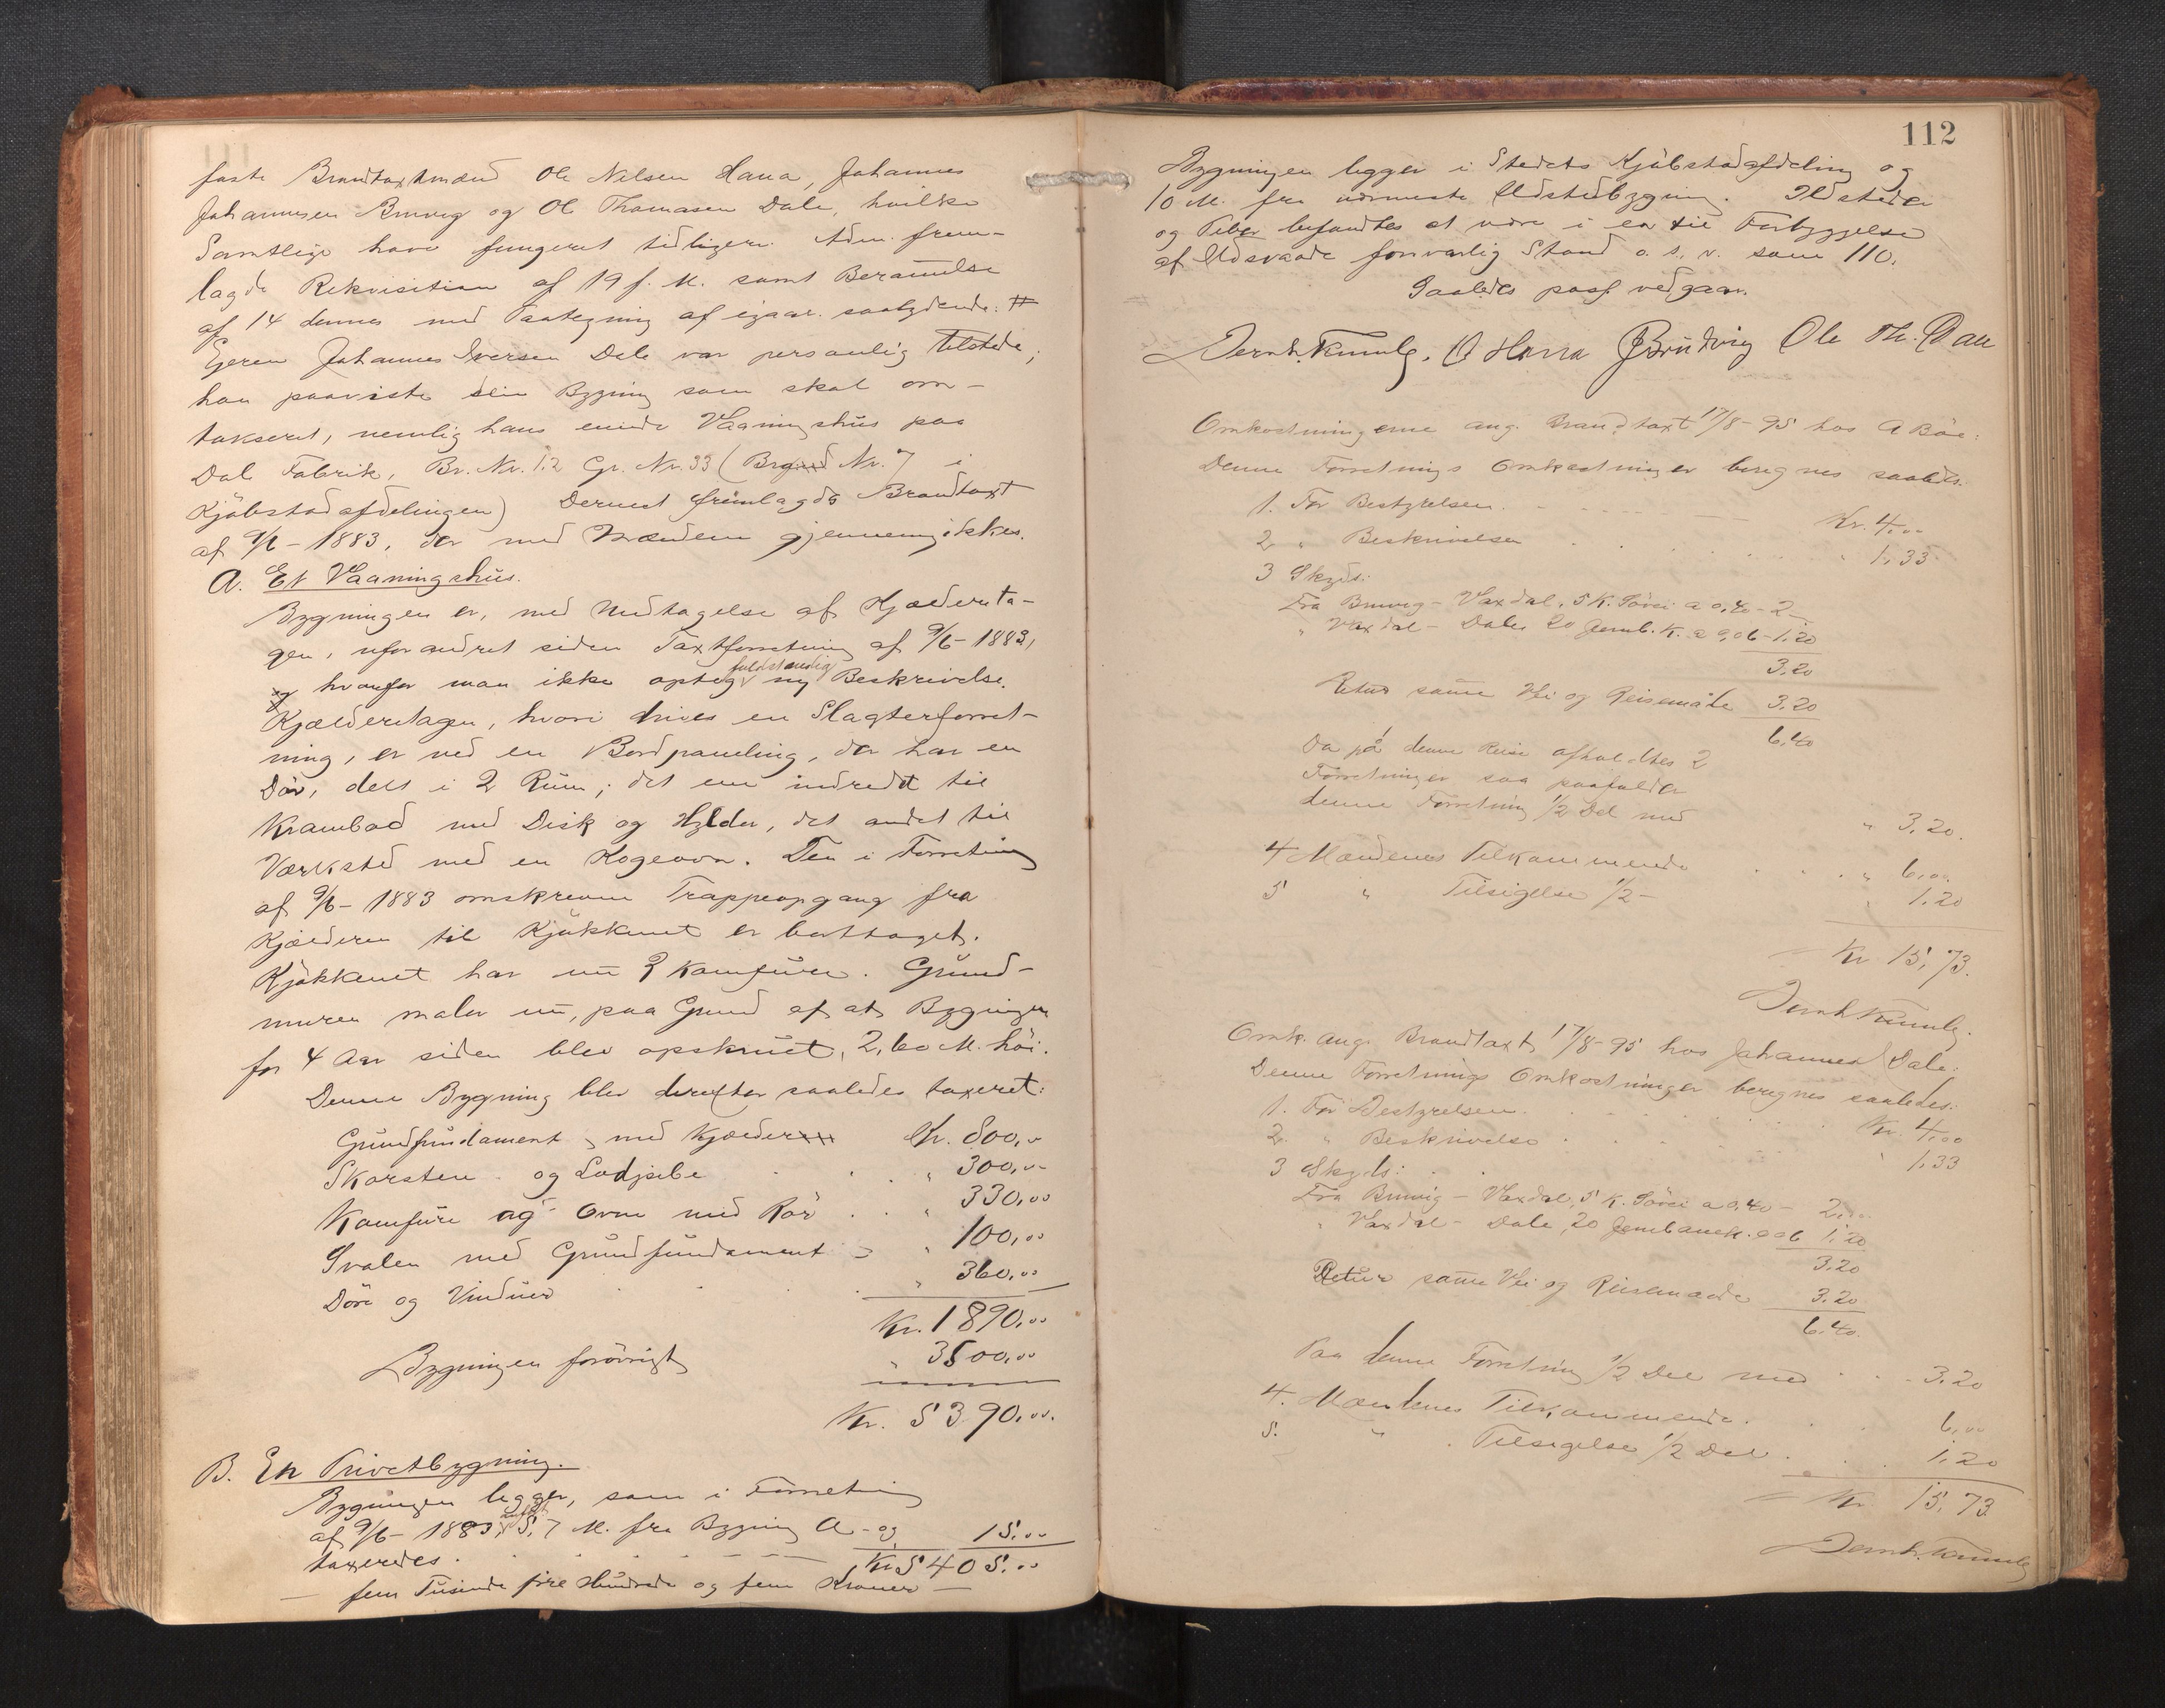 faste Brandtaxtmænd Ole Nilsen Hana, Johannes
Johannesen Bruvig og Ole Thomasen Dale, hvilke
Samtlige have fungeret tidligere. Adm. frem-
lagde Rekvisition af 19 f. M. samt Berammelse
af 14 dennes med Paategning af igaar. saalydende: #
Ejeren Johannes Iversen Dale var personlig tilstede;
han paaviste sin Bygning som skal om-
takseres, nemlig hans Vaaningshus paa
Dal Fabrik, Br. Nr. 12 Gr. Nr. 33 (Br Nr. 7 i
Kjøbstadsafdelingen) Dernest fremlagde Brandtaxt
af 9/6 - 1883, der med Mændene gjennemgikkes.
A. Et Vaaningshus.
Bygningen er, med Undtagelse af Kjældereta-
gen, uforandret siden Taxtforretning af 9/6 - 1883,
hvorfor man ikke optog fuldstændig ny Beskrivelse.
Kjælderetagen, hvori drives en Slagterforret-
ning, er ved en Bordpaneling, der har en
Dør, delt i 2 Rum; det ene indredet til
Krambod med Disk og Hylder, det andet til
Værksted med en Kogeovn. Den i Forretning
af 9/6 - 1883 omskrevne Trappeopgang fra
Kjælderen til Kjøkkenet er borttaget.
Kjøkkenet har nu 2 Komfurer. Grund-
muren maler nu, paa Grund af at Bygningen
for 4 Aar siden blev opskruet, 2,60 M. høi.
Denne Bygning blev derefter saaledes taxeret:
Grundfundament med Kjælder Kr. 800,00
Skorsten og Lodpibe " 300,00
Komfure og Ovne med Rør " 330,00
Svalen med Grundfundament " 100,00
Døre og Vinduer " 360,00
Kr. 1890,00
Bygningen forøvrigt " 3500,00
Kr. 5390,00.
B. En Privetbygning.
Bygningen ligger, som i Forretning
af 9/6 - 1883, 5,7 M. fra Bygning A og
taxeredes 15,00
Kr. 5405,00
— fem Tusinde fire Hundrede og fem Kroner —
112
Bygningen ligger i Stedets Kjøbstadsafdeling og
10 M. fra nærmeste Ildstedsbygning. Ildsteder
og Piber befandtes at være i en til Forbyggelse
af Ildsvaade forsvarlig Stand o. s. v. som 110.
Saaledes passeret vedgaar.
O Hana J Brudvig Ole Th. Dale
Omkostningerne ang. Brandtaxt 17/8 - 95 hos A Böe:
Denne Forretnings Omkostninger beregnes saaledes.
1. For Bestyrelsen Kr. 4,00
2 " Beskrivelsen " 1,33
3 Skyds:
Fra Bruvig - Vaxdal, 5 K. Søvei a 0,40 - 2
" Vaxdal - Dale 20 Jernb. K. a 0,06 - 1.20
3.20
Retur samme Vei og Reisemåde 3.20
6,40
Da på denne Reise afholdtes 2
Forretninger saa paafalder
denne Forretning 1/2 Del med " 3,20.
4 Mændenes Tilkommende " 6,00
5 " Tilsigelse 1/2 - " 1,20
Kr 15,73.
Omk. ang. Brandtaxt 17/8 - 95 hos Johannes Dale:
Denne Forretnings Omkostninger beregnes saaledes:
1. For Bestyrelsen Kr. 4,00
2. " Beskrivelse " 1,33
3 Skyds:
Fra Bruvig - Vaxdal, 5 K. Søvei a 0,40 - 2,00
" Vaxdal - Dale, 20 Jernbanek. 0,06 1,20
3.20
Retur samme Vei og Reisemaade 3.20
6,40.
Paa denne Forretning 1/2 Del med 3.20
4. Mændenes Tilkommende 6,00
5. " Tilsigelse 1/2 Del 1,20
Kr 15,73